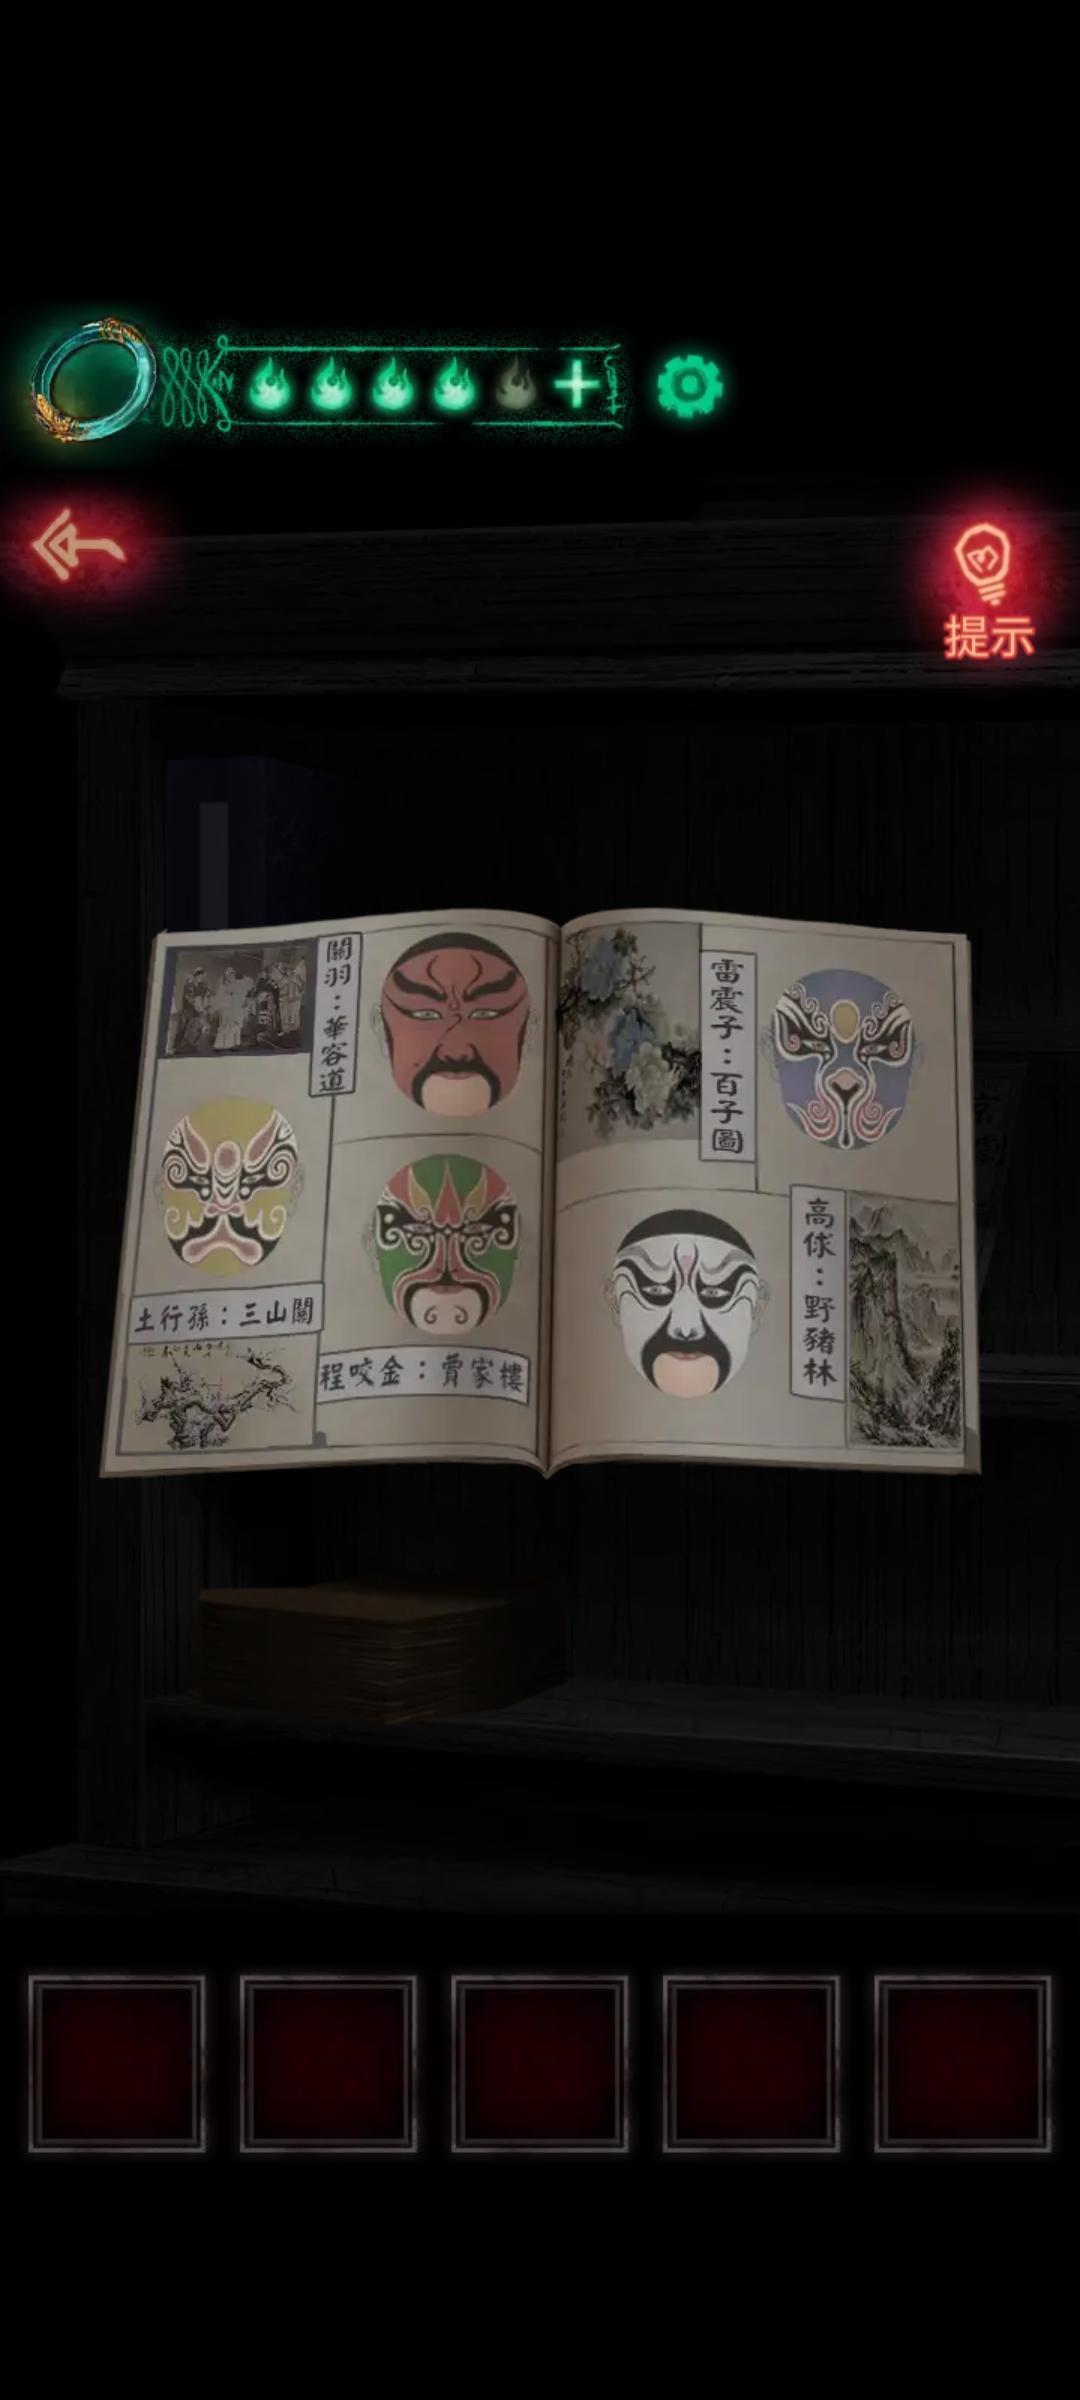 提示
關羽：華容道
土行孫：三山關
程咬金：賈家樓
雷震子：百子圖
高俅：野豬林